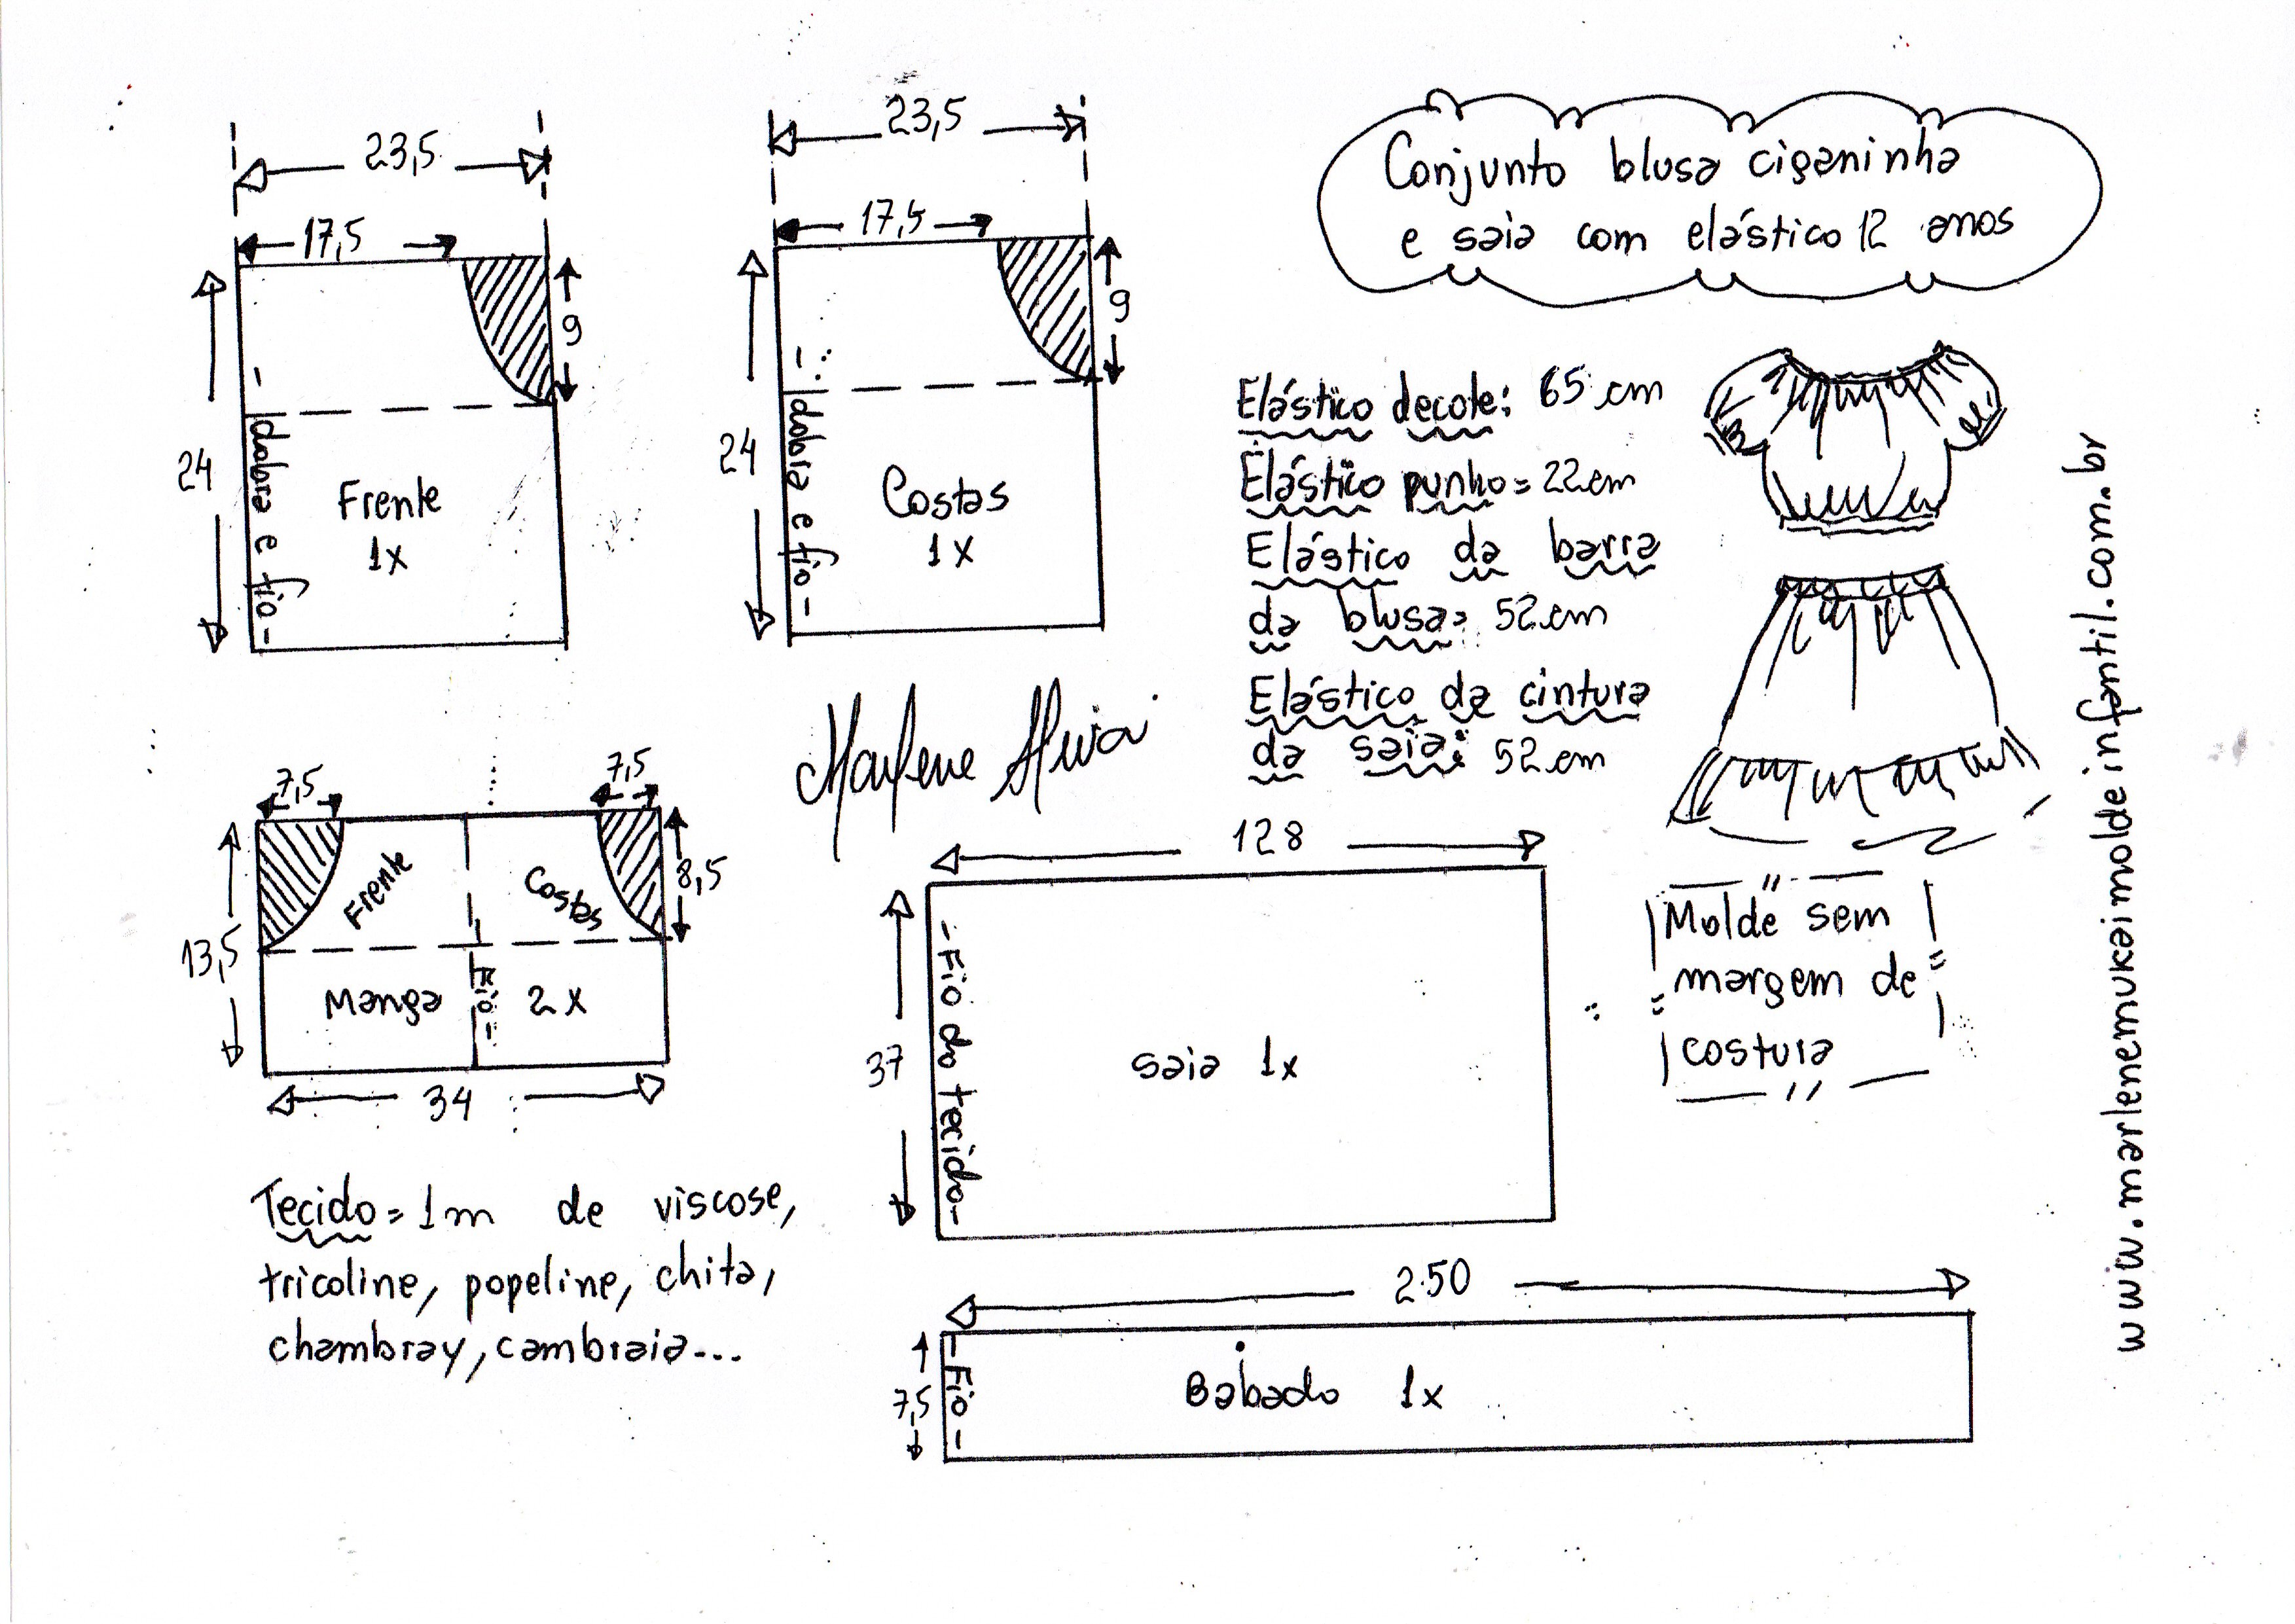 Conjunto blusa ciganinha
e saia com elástico 12 anos
23,5
17,5
24
9
dobra e fio
Frente
1x
23,5
17,5
24
9
dobra e fio
Costas
1x
Elástico decote: 65 cm
Elástico punho = 22cm
Elástico da barra
da blusa = 52cm
Elástico da cintura
da saia: 52cm
Marlene
7,5
7,5
8,5
13,5
Frente
Costas
Manga
Fio
2x
34
128
37
Fio do tecido
saia 1x
Molde sem
margem de
costura
Tecido = 1m de viscose,
tricoline, popeline, chita,
chambray, cambraia...
2.50
7,5
Fio
Babado 1x
www.marlenemukaimoldeinfantil.com.br